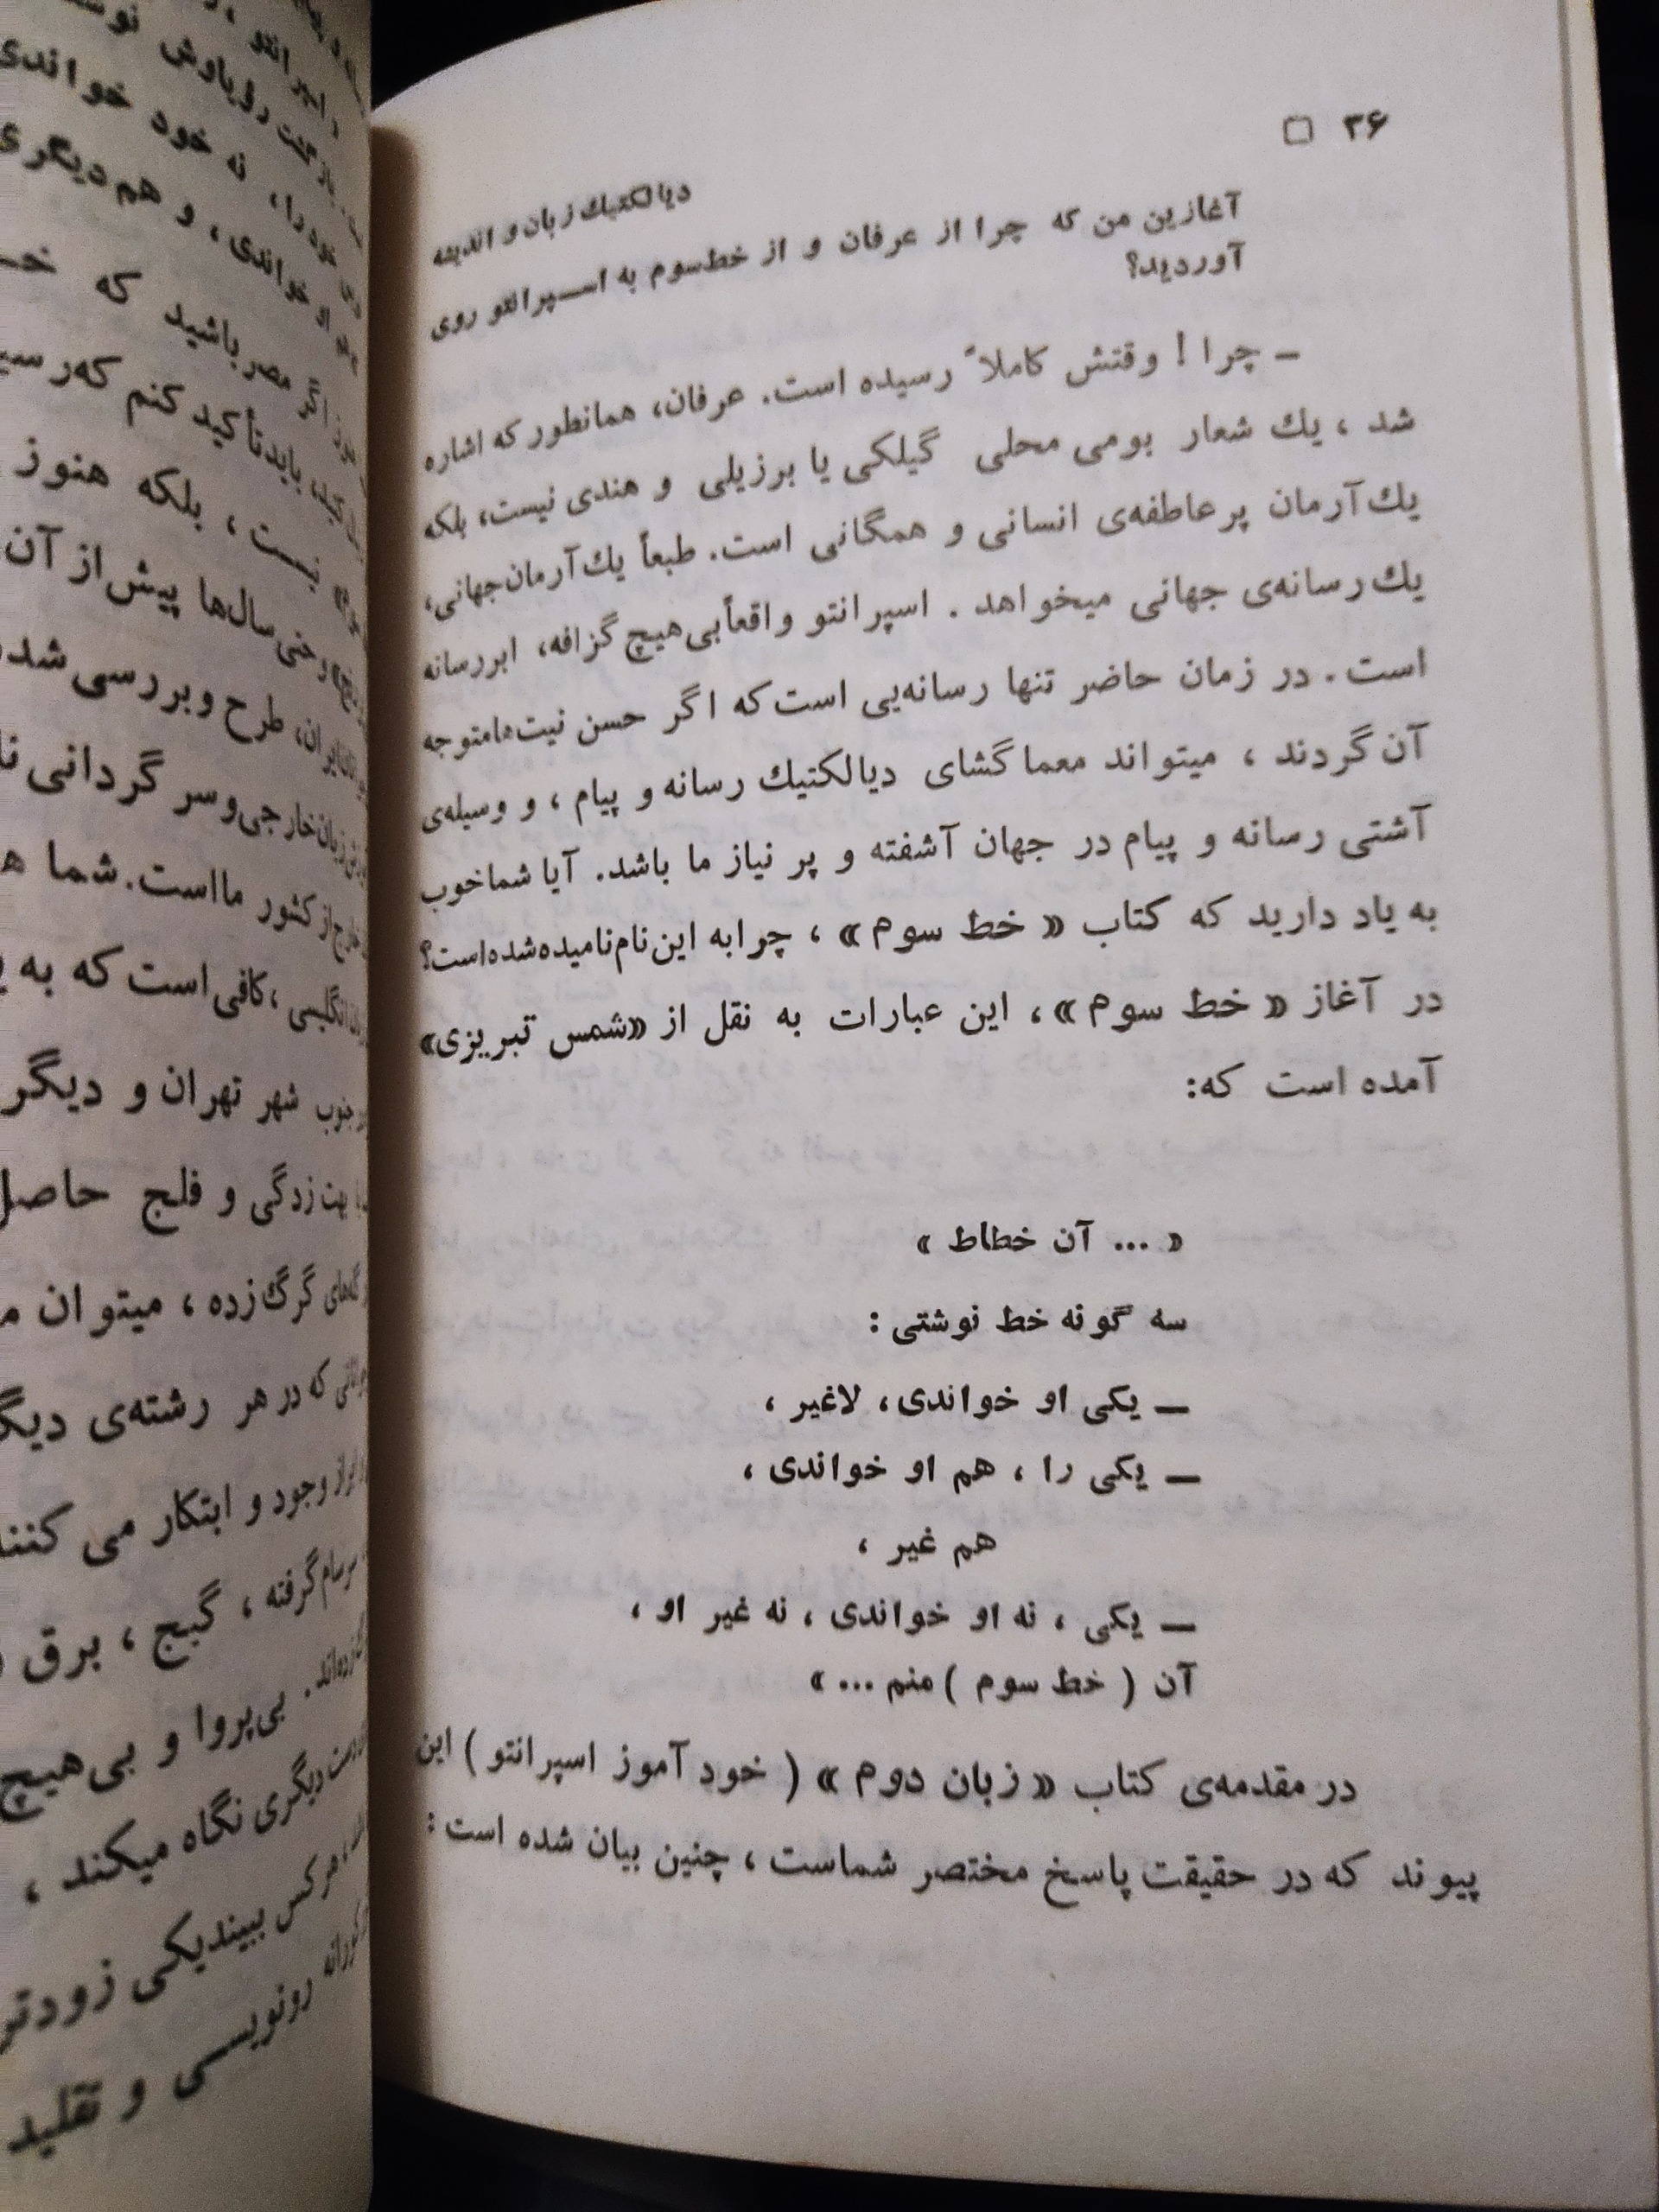 ۲۶ □
دیالکتیك زبان و اندیشه
آغازین من که چرا از عرفان و از خط‌سوم به اسپرانتو روی
آوردید؟
– چرا ! وقتش کاملاً رسیده است. عرفان، همانطور که اشاره
شد ، یك شعار بومی محلی گیلکی یا برزیلی و هندی نیست، بلکه
یك آرمان پر عاطفه‌ی انسانی و همگانی است. طبعاً یك آرمان جهانی،
یك رسانه‌ی جهانی میخواهد . اسپرانتو واقعاً بی هیچ گزافه، ابررسانه
است . در زمان حاضر تنها رسانه‌یی است که اگر حسن نیت‌ها متوجه
آن گردند ، میتواند معما گشای دیالکتیك رسانه و پیام ، و وسیله‌ی
آشتی رسانه و پیام در جهان آشفته و پر نیاز ما باشد. آیا شما خوب
به یاد دارید که کتاب « خط سوم » ، چرا به این نام نامیده شده است؟
در آغاز « خط سوم » ، این عبارات به نقل از «شمس تبریزی»
آمده است که:
« ... آن خطاط »
سه گونه خط نوشتی :
— یکی او خواندی، لاغیر ،
— یکی را ، هم او خواندی ،
هم غیر ،
— یکی ، نه او خواندی ، نه غیر او ،
آن ( خط سوم ) منم ... »
در مقدمه‌ی کتاب « زبان دوم » ( خود آموز اسپرانتو ) این
پیوند که در حقیقت پاسخ مختصر شماست ، چنین بیان شده است :
نه خود خواندی
و هم دیگری
مصر باشید که
باید تأکید کنم که
نیست ، بلکه هنوز
وحتی سال‌ها پیش از آن
طرح و بررسی شد
خارجی و سر گردانی
کشور ما است. شما
انگلیسی ، کافی است که به
جنوب شهر تهران و دیگر
زدگی و فلج حاصل
گرگ زده ، میتوان
که در هر رشته‌ی
وجود و ابتکار می
گرفته ، گیج ، برق
بی‌پروا و بی هیچ
دیگری نگاه میکند ،
هر کس ببیند یکی زودتر
رونویسی و تقلید